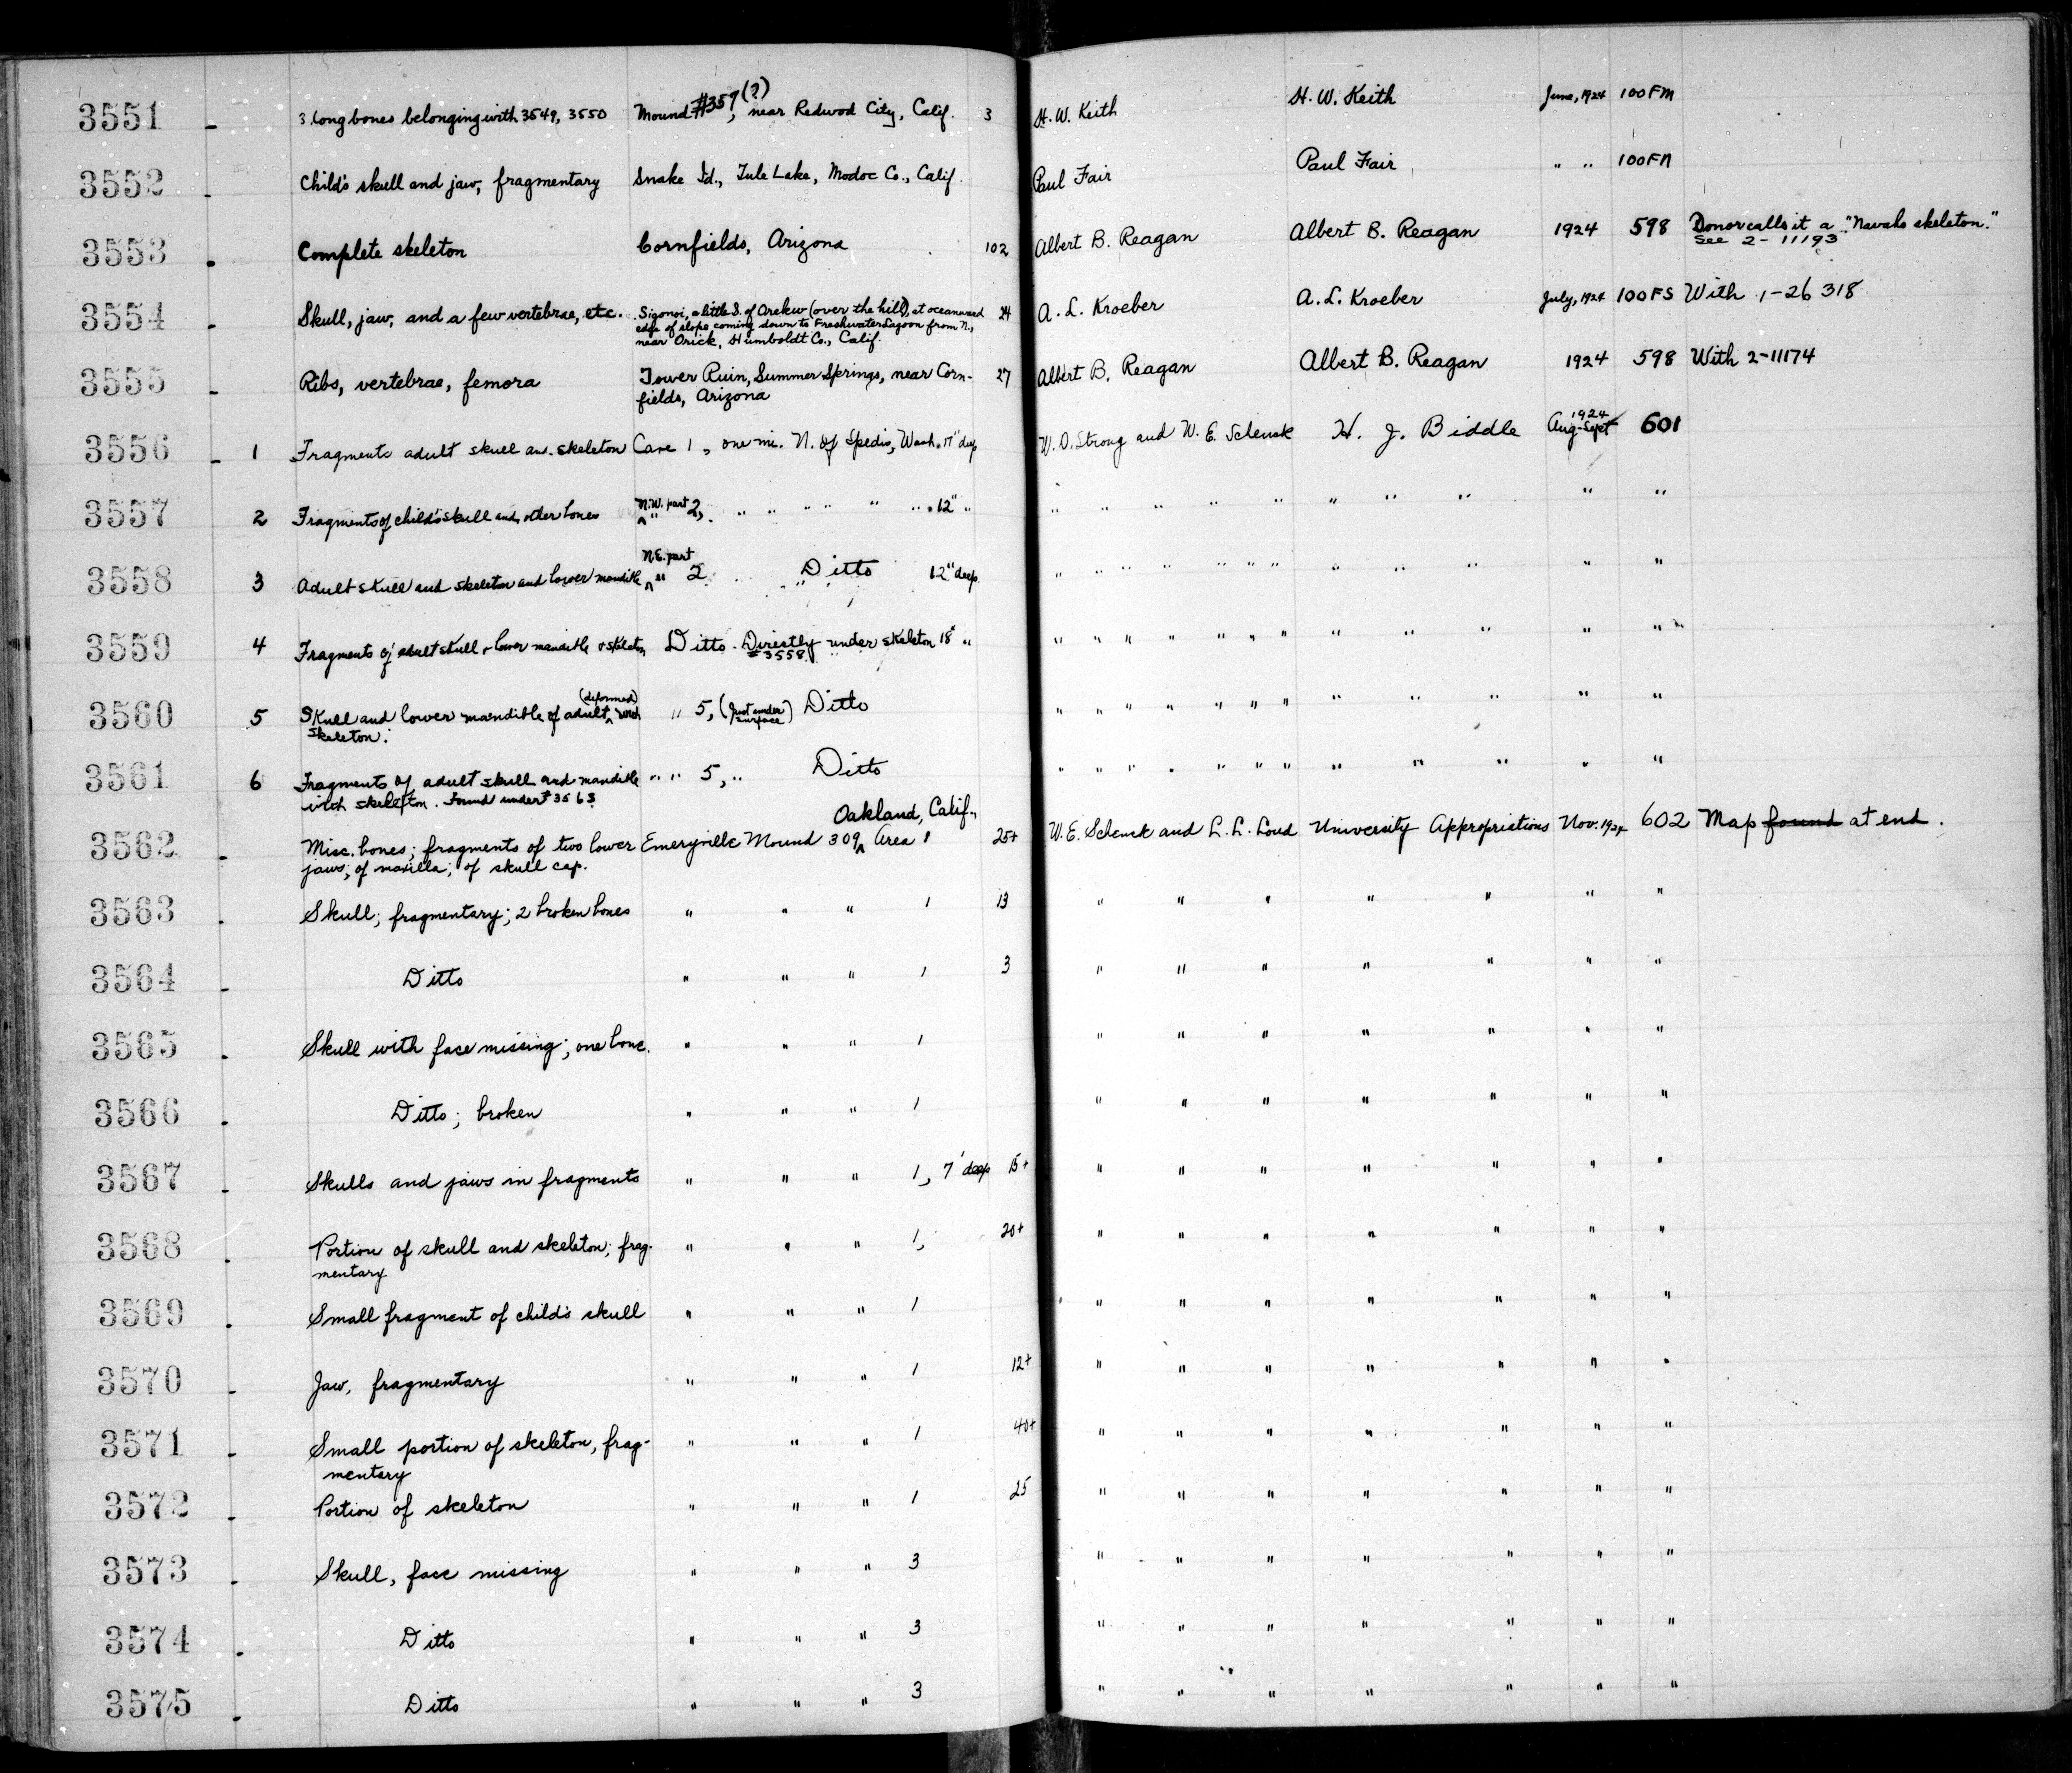 3551 - 3 long bones belonging with 3549, 3550 Mound #357(?), near Redwood City, Calif. 3 H. W. Keith H. W. Keith June, 1924 100FM
3552 - Child's skull and jaw, fragmentary Snake Id., Tule Lake, Modoc Co., Calif. Paul Fair Paul Fair " " 100FN
3553 - Complete skeleton Cornfields, Arizona 102 Albert B. Reagan Albert B. Reagan 1924 598 Donor calls it a "Navaho skeleton."
See 2-11193
3554 - Skull, jaw, and a few vertebrae, etc. Sigonoi, a little S. of Orekw (over the hill), at oceanward 24 A. L. Kroeber A. L. Kroeber July, 1924 100FS With 1-26318
edge of slope coming down to Freshwater Lagoon from N.,
near Orick, Humboldt Co., Calif.
3555 - Ribs, vertebrae, femora Tower Ruin, Summer Springs, near Corn- 27 Albert B. Reagan Albert B. Reagan 1924 598 With 2-11174
fields, Arizona
3556 - 1 Fragments adult skull and skeleton Cave 1, one mi. N. of Spedis, Wash. 17" deep W. D. Strong and W. E. Schenck H. J. Biddle Aug-Sept 1924 601
3557 2 Fragments of child's skull and other bones N.W. part " 2, " " " " " " 12" " " " " " " " " " "
3558 3 Adult skull and skeleton and lower mandible N.E. part " 2 Ditto 12" deep " " " " " " " " " " " "
3559 4 Fragments of adult skull & lower mandible & skeleton Ditto. Directly under skeleton 18" "
#3558
" " " " " " " " " " " "
3560 5 Skull and lower mandible of adult (deformed) with " 5, (Just under surface) Ditto " " " " " " " " " " " "
skeleton.
3561 6 Fragments of adult skull and mandible " " 5, " Ditto " " " " " " " " " " " "
with skeleton. Found under #3563
Oakland, Calif.,
3562 - Misc. bones; fragments of two lower Emeryville Mound 309 Area 1 25+ W. E. Schenck and L. L. Loud University Appropriations Nov. 1924 602 Map found at end.
jaws; of maxilla; of skull cap.
3563 - Skull; fragmentary; 2 broken bones " " " 1 13 " " " " " " "
3564 - Ditto " " " 1 3 " " " " " " "
3565 - Skull with face missing; one bone. " " " 1 " " " " " " "
3566 - Ditto; broken " " " 1 " " " " " " "
3567 - Skulls and jaws in fragments " " " 1, 7' deep 15+ " " " " " " "
3568 - Portion of skull and skeleton; frag- " " " 1, 20+ " " " " " " "
mentary
3569 - Small fragment of child's skull " " " 1 " " " " " " "
3570 - Jaw, fragmentary " " " 1 12+ " " " " " " "
3571 - Small portion of skeleton, frag- " " " 1 40+ " " " " " " "
mentary
3572 - Portion of skeleton " " " 1 25 " " " " " " "
3573 - Skull, face missing " " " 3 " " " " " " "
3574 - Ditto " " " 3 " " " " " " "
3575 - Ditto " " " 3 " " " " " " "